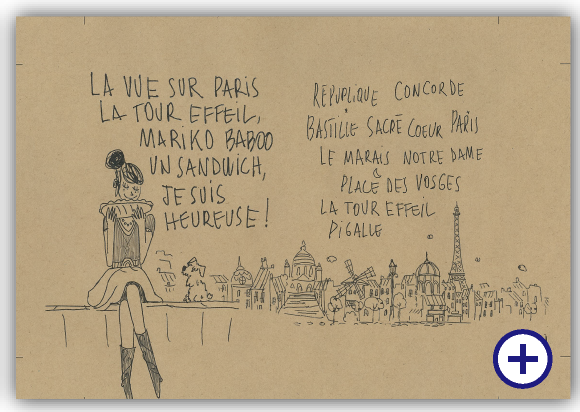 LA VUE SUR PARIS
LA TOUR EFFEIL,
MARIKO BABOO
UN SANDWICH,
JE SUIS
HEUREUSE!
REPUPLIQUE CONCORDE
BASTILLE SACRÉ COEUR PARIS
LE MARAIS NOTRE DAME
PLACE DES VOSGES
LA TOUR EFFEIL
PIGALLE